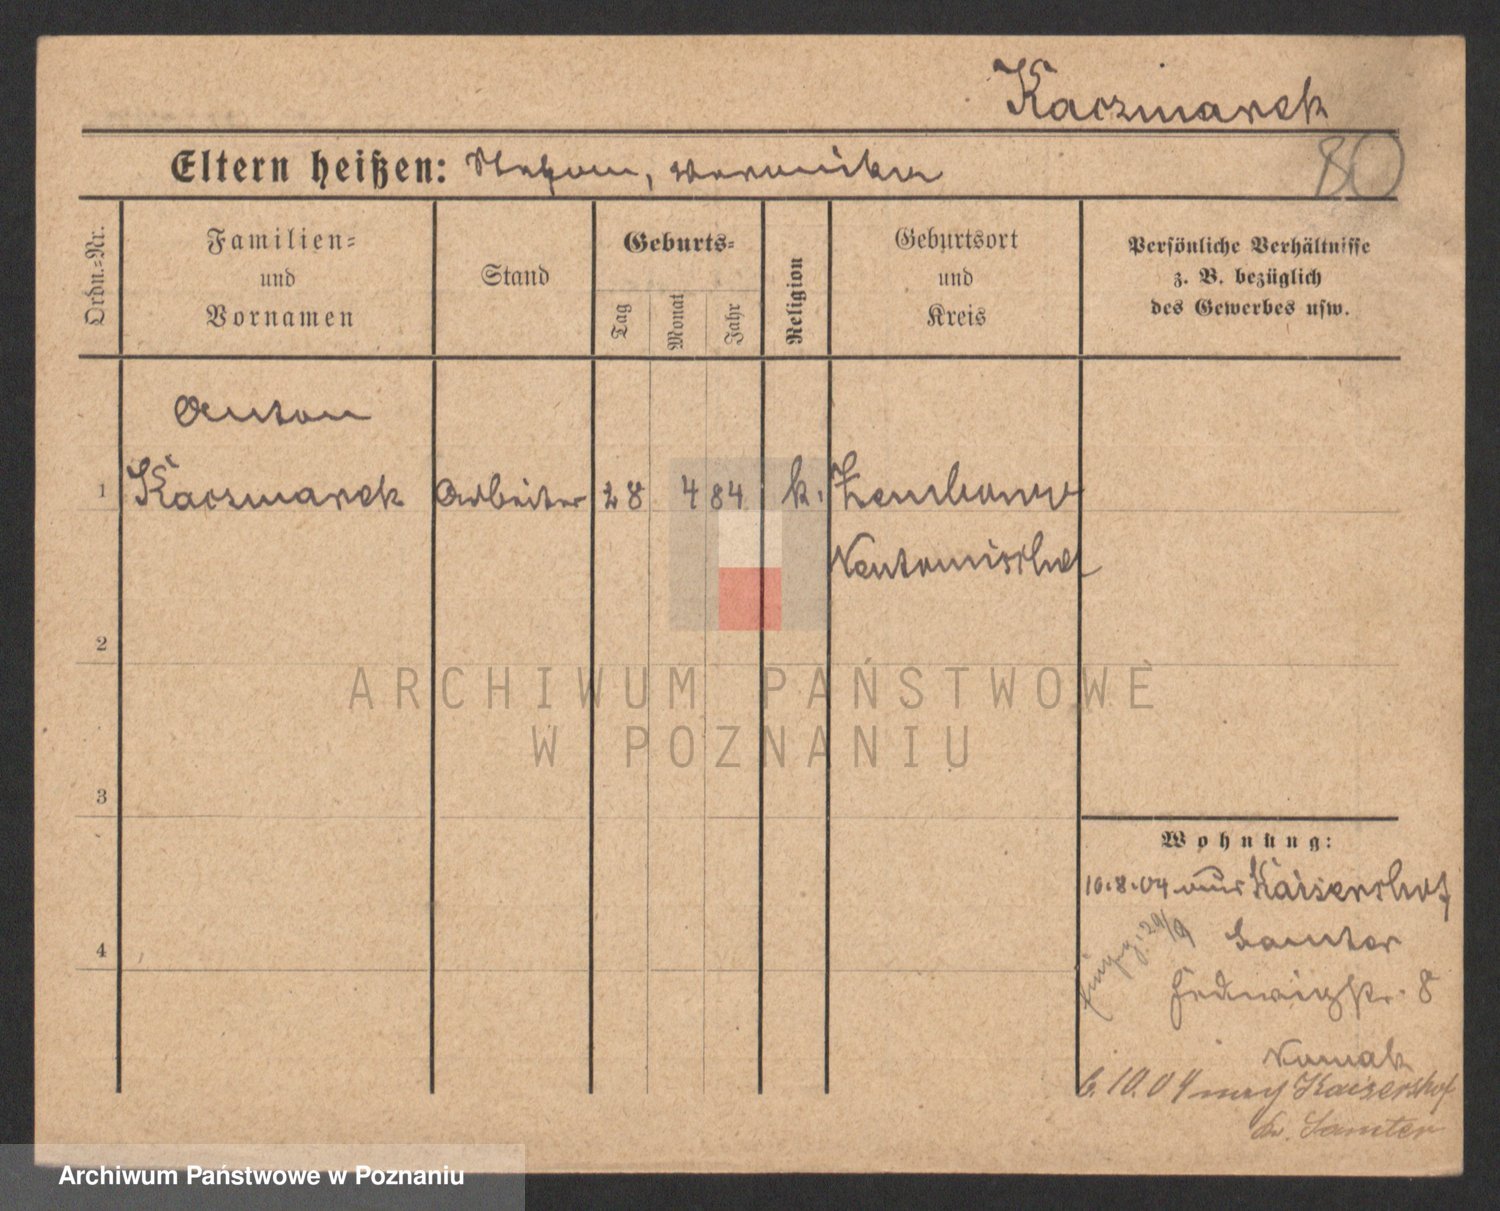 Kaczmarek
80
Eltern heißen: Stefan, Veronika
Ordn.-Nr.
Familien-
und
Vornamen
Stand
Geburts-
Tag
Monat
Jahr
Religion
Geburtsort
und
Kreis
Persönliche Verhältnisse
z. B. bezüglich
des Gewerbes usw.
Anton
1 Kaczmarek Arbeiter 28 4 84 k.
Neutomischel
2
ARCHIWUM PAŃSTWOWE
W POZNANIU
3
Wohnung:
10.8.04 aus Kaisershof
Samter
29/9
Hedwigstr. 8
Nowak
6.10.04 nach Kaisershof
Kr. Samter
4
Archiwum Państwowe w Poznaniu